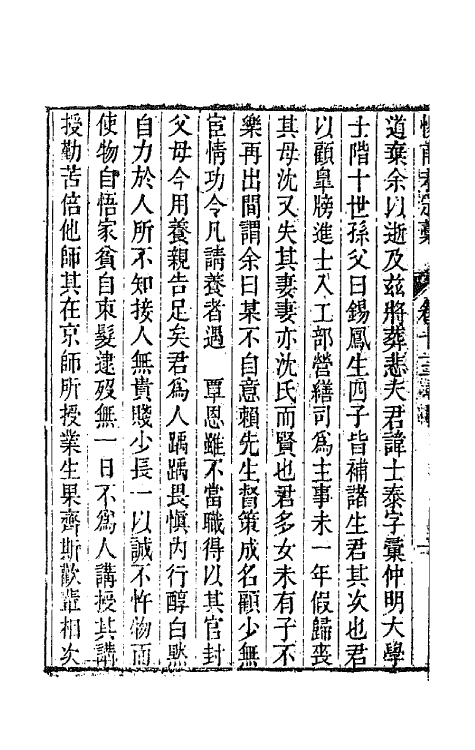 道棄余以逝及茲將葬悲夫君諱士泰字彙仲明大學
士階十世孫父曰錫鳳生四子皆補諸生君其次也君
以顧臯牓進士入工部營繕司為主事未一年假歸喪
其母沈又失其妻妻亦沈氏而賢也君多女未有子不
樂再出間謂余曰某不自意賴先生督策成名顧少無
宦情功令凡請養者遇 覃恩雖不當職得以其官封
父母今用養親告足矣君為人踽踽畏慎內行醇白黙
自力於人所不知接人無貴賤少長一以誠不忤物而
使物自悟家貧自束髮逮歿無一日不為人講授其講
授勤苦倍他師其在京師所授業生果齊斯歡輩相次